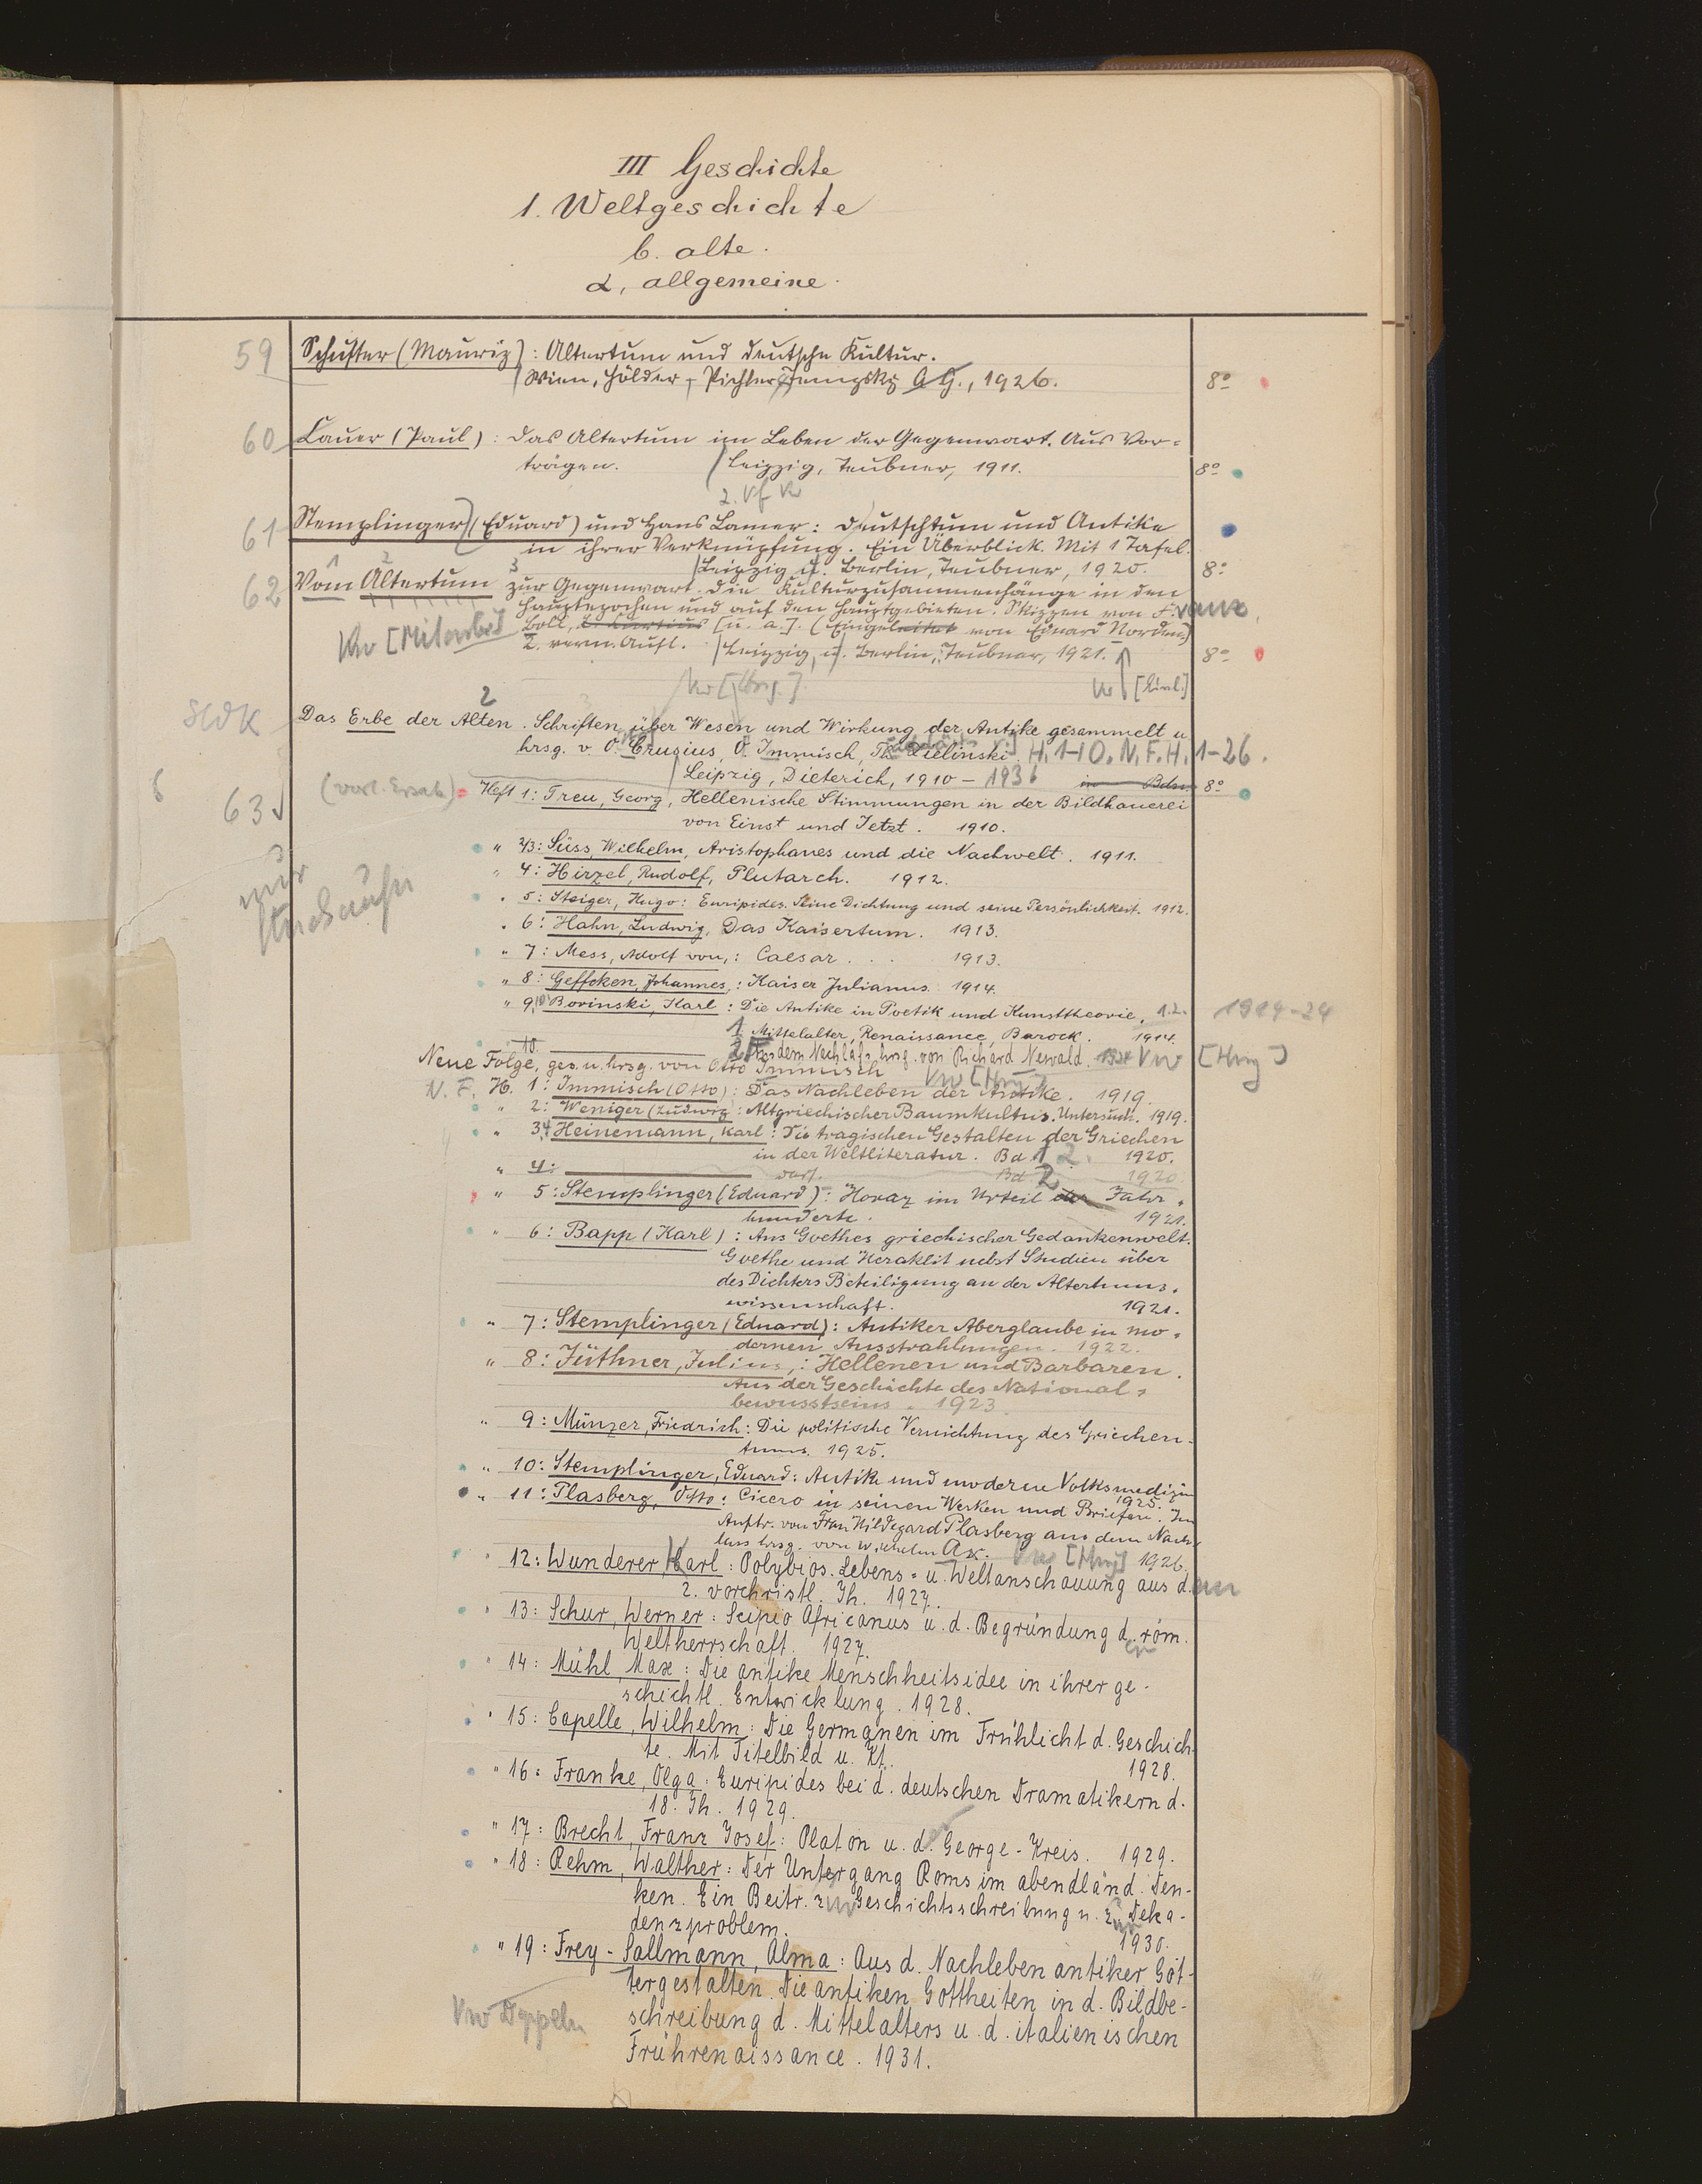 III Geschichte
1. Weltgeschichte
b. alte.
α, allgemeine.
59 Schuster (Mauriz): Altertum und deutsche Kultur.
Wien, Hölder-Pichler-Tempsky A.G., 1926. 8°
60 Cauer (Paul): Das Altertum im Leben der Gegenwart. Aus Vor=
trägen. Leipzig, Teubner, 1911. 8°
2. Vf Vw
61 Stemplinger (Eduard) und Hans Lamer: Deutschtum und Antike
in ihrer Verknüpfung. Ein Überblick. Mit 1 Tafel.
Leipzig u. Berlin, Teubner, 1920. 8°
1 2 3
62 Vom Altertum zur Gegenwart. Die Kulturzusammenhänge in den
Hauptepochen und auf den Hauptgebieten. Skizzen von Franz
Vw [Mitarb.] Boll, L. Curtius [u. a.]. (Eingeleitet von Eduard Norden)
2. verm. Aufl. Leipzig, u. Berlin, Teubner, 1921. 8°
Vw [Hrsg.] Vw [Einl.]
2
SWK Das Erbe der Alten. Schriften über Wesen und Wirkung der Antike gesammelt u
hrsg. v. O. Crusius, O. Immisch, Th. Zielinski. H. 1-10. N.F. H. 1-26.
Leipzig, Dieterich, 1910 – 1936 in Bdn. 8°
63 (vorl. Ersatz) Heft 1: Treu, Georg, Hellenische Stimmungen in der Bildhauerei
von Einst und Jetzt. 1910.
" 2/3: Süss, Wilhelm, Aristophanes und die Nachwelt. 1911.
nur
" 4: Hirzel, Rudolf, Plutarch. 1912.
" 5: Steiger, Hugo: Euripides. Seine Dichtung und seine Persönlichkeit. 1912.
" 6: Hahn, Ludwig, Das Kaisertum. 1913.
" 7: Mess, Adolf von,: Caesar. . . 1913.
" 8: Geffcken, Johannes,: Kaiser Julianus 1914.
" 9,10 Borinski, Karl: Die Antike in Poetik und Kunsttheorie. 1.2. 1914-24
1. Mittelalter, Renaissance, Barock. 1914.
10. 2. Aus dem Nachlaß hrsg. von Richard Newald. 1924 Vw [Hrsg]
Neue Folge, ges. u. hrsg. von Otto Immisch Vw [Hrsg]
N. F. H. 1: Immisch (Otto): Das Nachleben der Antike. 1919.
" 2: Weniger (Ludwig: Altgriechischer Baumkultus. Untersuch. 1919.
" 3,4 Heinemann, Karl: Die tragischen Gestalten der Griechen
in der Weltliteratur. Bd 1 2. 1920.
" 4: ——— dass. Bd. 2 1920
" 5: Stemplinger (Eduard): Horaz im Urteil der Jahr=
hunderte. 1921.
" 6: Bapp (Karl): Aus Goethes griechischer Gedankenwelt.
Goethe und Heraklit nebst Studien über
des Dichters Beteiligung an der Altertums=
wissenschaft. 1921.
" 7: Stemplinger (Eduard): Antiker Aberglaube in mo=
dernen Ausstrahlungen. 1922.
" 8: Jüthner, Julius,: Hellenen und Barbaren.
Aus der Geschichte des National=
bewusstseins. 1923
" 9: Münzer, Friedrich: Die politische Vernichtung des Griechen-
tums. 1925.
" 10: Stemplinger, Eduard: Antike und moderne Volksmedizin
1925.
" 11: Plasberg, Otto: Cicero in seinen Werken und Briefen. Im
Auftr. von Frau Hildegard Plasberg aus dem Nach-
lass hrsg. von Wilhelm Ax. Vw [Hrsg] 1926.
" 12: Wunderer Karl: Polybios. Lebens- u. Weltanschauung aus dem
2. vorchristl. Jh. 1927.
" 13: Schur, Werner: Scipio Africanus u. d. Begründung d. röm.
Weltherrschaft. 1927. er
" 14: Mühl, Max: Die antike Menschheitsidee in ihrer ge-
schichtl. Entwicklung. 1928.
" 15: Capelle, Wilhelm: Die Germanen im Frühlicht d. Geschich-
te. Mit Titelbild u. Kt. 1928.
" 16: Franke, Olga: Euripides bei d. deutschen Dramatikern d.
18. Jh. 1929.
" 17: Brecht, Franz Josef: Platon u. d. George-Kreis. 1929.
" 18: Rehm, Walther: Der Untergang Roms im abendländ. Den-
ken. Ein Beitr. zur Geschichtsschreibung u. zum Deka-
denzproblem. 1930.
" 19: Frey-Sallmann, Alma: Aus d. Nachleben antiker Göt-
tergestalten. Die antiken Gottheiten in d. Bildbe-
Vw Doppeln schreibung d. Mittelalters u. d. italienischen
Frührenaissance. 1931.